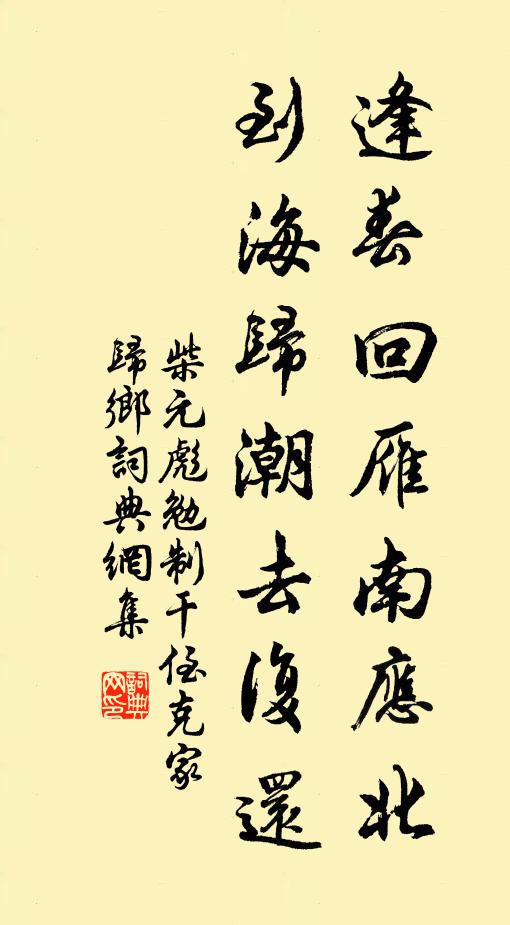 逢春回雁南應北
到海歸潮去復還
柴元彪勉制干侄克家
歸鄉詞典網集
詞典網印